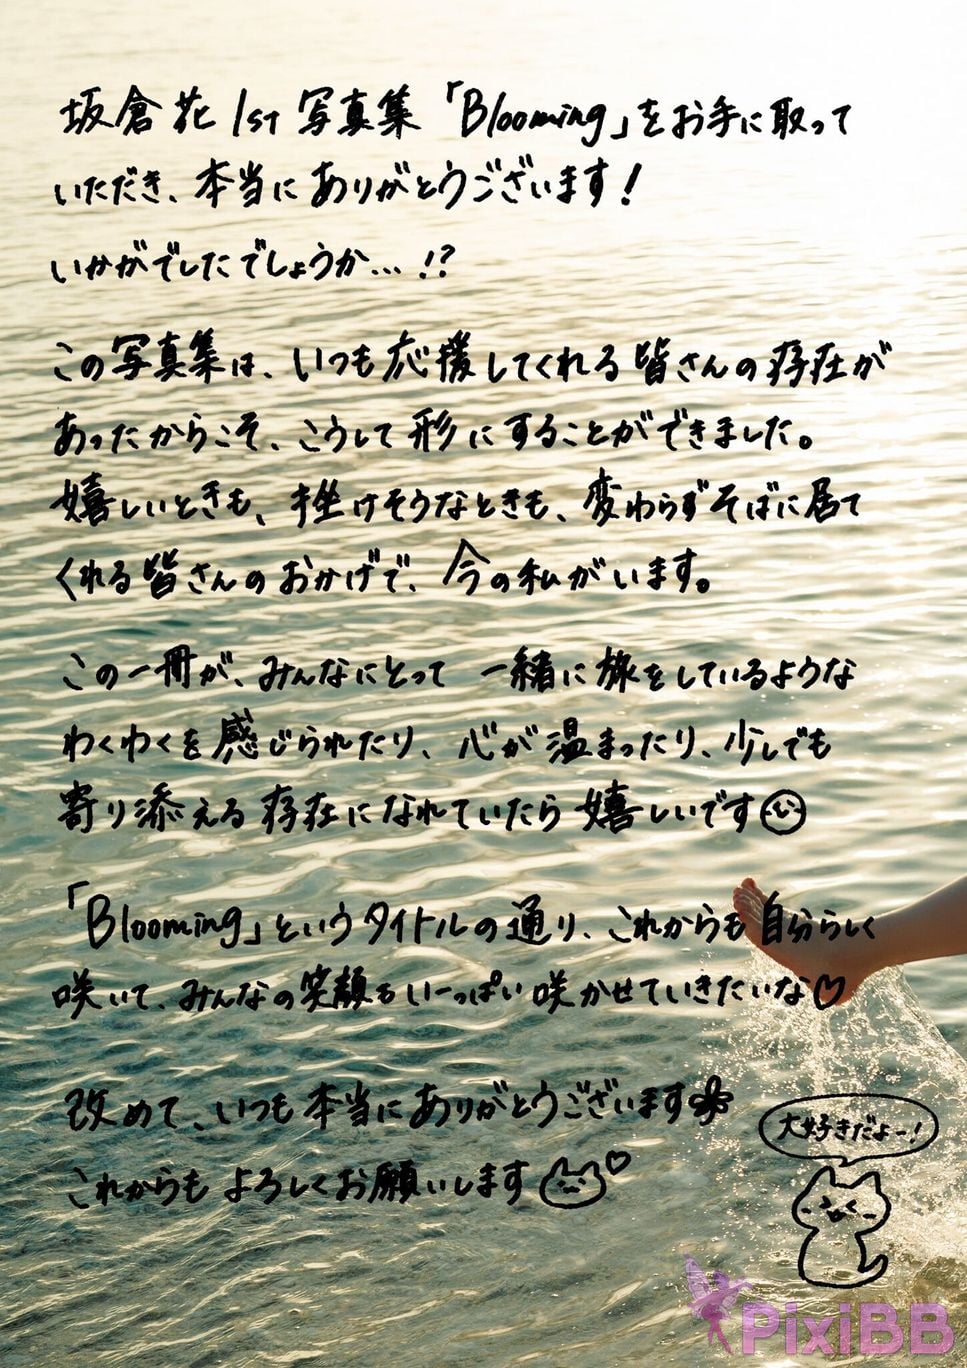 坂倉花 1st 写真集「Blooming」をお手に取って
いただき、本当にありがとうございます！
いかがでしたでしょうか…！？
この写真集は、いつも応援してくれる皆さんの存在が
あったからこそ、こうして形にすることができました。
嬉しいときも、挫けそうなときも、変わらずそばに居て
くれる皆さんのおかげで、今の私がいます。
この一冊が、みんなにとって 一緒に旅をしているような
わくわくを感じられたり、心が温まったり、少しでも
寄り添える存在になれていたら嬉しいです
「Blooming」というタイトルの通り、これからも自分らしく
咲いて、みんなの笑顔もいーっぱい咲かせていきたいな♡
改めて、いつも本当にありがとうございます
これからもよろしくお願いします♡
大好きだよー！
PixiBB